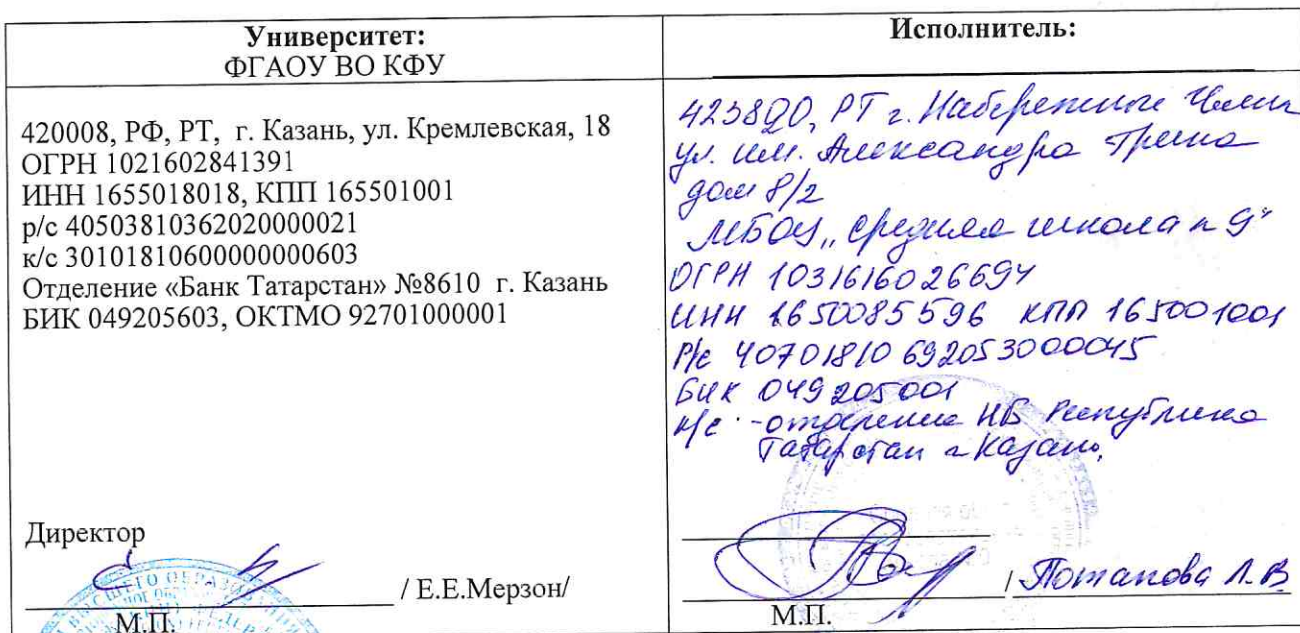 Университет:
ФГАОУ ВО КФУ
420008, РФ, РТ, г. Казань, ул. Кремлевская, 18
ОГРН 1021602841391
ИНН 1655018018, КПП 165501001
р/с 40503810362020000021
к/с 30101810600000000603
Отделение «Банк Татарстан» №8610 г. Казань
БИК 049205603, ОКТМО 92701000001
Директор
/ Е.Е.Мерзон/
М.П.
Исполнитель:
423820, РТ г. Набережные Челны
ул. им. Александра Грина
дом 8/2
МБОУ „Средняя школа n 9"
ОГРН 1031616026694
ИНН 1650085596 КПП 165001001
Р/с 40701810692053000045
БИК 049205001
к/с - отделение НБ Республика
Татарстан г Казань,
/ Потапова Л.В
М.П.